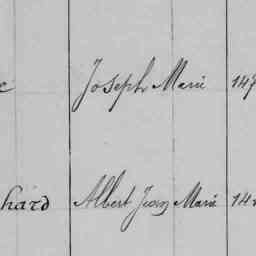 c Joseph Marie 147
hard Albert Jean Marie 14